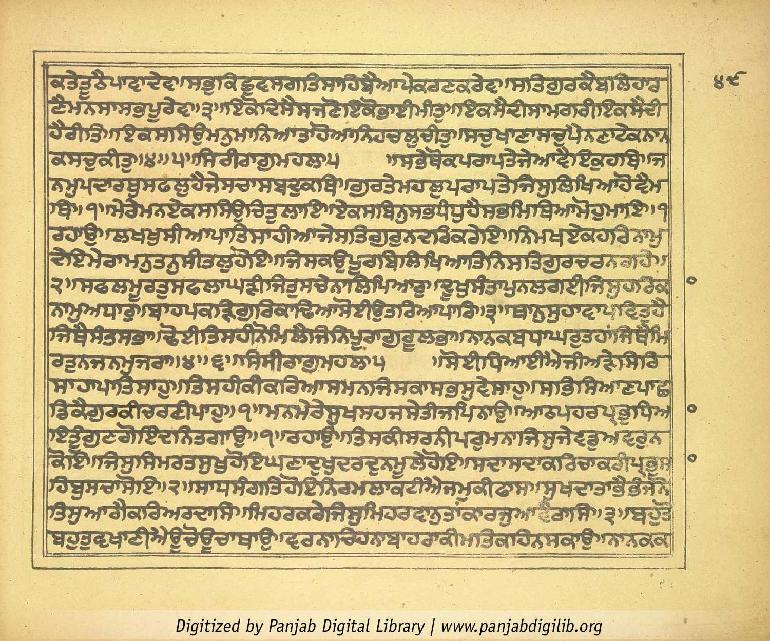 ਕਤੇਤੁਠੈਪਾਣਾਦੇਵਾ॥ਸਭੁਕਿਛੁਵਸਗਤਿਸਾਹਿਬੈਆਪੇਕਰਣਕਰੇਵਾ॥ਸਤਿਗੁਰਕੈਬਲਿਹਾਰ
੪੯
ਣੈਮਨਸਾਸਭਪੂਰੇਵਾ॥੩॥ਇਕੋਦਿਸੈਸਜਣੋਇਕੋਭਾਈਮੀਤੁ॥ਇਕਸੈਦੀਸਾਮਗਰੀਇਕਸੈਦੀ
ਹੈਰੀਤਿ॥ਇਕਸਸਿਉਮਨੁਮਾਨਿਆਤਾਹੋਆਨਿਹਚਲੁਚੀਤੁ॥ਸਚੁਖਾਣਾਸਚੁਪੈਨਣਾਟੇਕਨਾਨ
ਕਸਚੁਕੀਤੁ॥੪॥੫॥ਸਿਰੀਰਾਗੁਮਹਲਾ੫ ॥ਸਭੇਥੋਕਪਰਾਪਤੇਜੇਆਵੈਇਕੁਹਥਿ॥ਜ
ਨਮੁਪਦਾਰਥੁਸਫਲੁਹੈਜੇਸਚਾਸਬਦੁਕਥਿ॥ਗੁਰਤੇਮਹਲੁਪਰਾਪਤੇਜਿਸੁਲਿਖਿਆਹੋਵੈਮ
ਥਿ॥੧॥ਮੇਰੇਮਨਏਕਸਸਿਉਚਿਤੁਲਾਇ॥ਏਕਸਬਿਨੁਸਭਧੰਧੁਹੈਸਭਮਿਥਿਆਮੋਹੁਮਾਇ॥੧
ਰਹਾਉ॥ਲਖਖੁਸੀਆਪਾਤਿਸਾਹੀਆਜੇਸਤਿਗੁਰੁਨਦਰਿਕਰੇਇ॥ਨਿਮਖਏਕਹਰਿਨਾਮੁ
ਦੇਇਮੇਰਾਮਨੁਤਨੁਸੀਤਲੁਹੋਇ॥ਜਿਸਕਉਪੂਰਬਿਲਿਖਿਆਤਿਨਿਸਤਿਗੁਰਚਰਨਗਹੇ॥
੨॥ਸਫਲਮੂਰਤੁਸਫਲਾਘੜੀਜਿਤੁਸਚੇਨਾਲਿਪਿਆਰੁ॥ਦੂਖੁਸੰਤਾਪੁਨਲਗਈਜਿਸੁਹਰਿਕਾ
ਨਾਮੁਅਧਾਰੁ॥ਬਾਹਪਕੜਿਗੁਰਿਕਾਢਿਆਸੋਈਉਤਰਿਆਪਾਰਿ॥੩॥ਥਾਨੁਸੁਹਾਵਾਪਵਿਤੁਹੈ
ਜਿਥੈਸੰਤਸਭਾ॥ਢੋਈਤਿਸਹੀਨੋਮਿਲੈਜਿਨਿਪੂਰਾਗੁਰੂਲਭਾ॥ਨਾਨਕਬਧਾਘਰੁਤਹਾਂਜਿਥੈਮਿ
ਰਤੁਨਜਨਮੁਜਰਾ॥੪॥੬॥ਸਿਰੀਰਾਗੁਮਹਲਾ੫ ॥ਸੋਈਧਿਆਈਐਜੀਅੜੇਸਿਰਿ
ਸਾਹਾਪਾਤਿਸਾਹੁ॥ਤਿਸਹੀਕੀਕਰਿਆਸਮਨਜਿਸਕਾਸਭਸੁਵੇਸਾਹੁ॥ਸਭਿਸਿਆਣਪਾਛ
ਡਿਕੈਗੁਰਕੀਚਰਣੀਪਾਹੁ॥੧॥ਮਨਮੇਰੇਸੁਖਸਹਜਸੇਤੀਜਪਿਨਾਉ॥ਆਠਪਹਰਪ੍ਰਭੁਧਿਆ
ਇਤੂੰਗੁਣਗੋਇੰਦਨਿਤਗਾਉ॥੧॥ਰਹਾਉ॥ਤਿਸਕੀਸਰਨੀਪਰੁਮਨਾਜਿਸੁਜੇਵਡੁਅਵਰੁਨ
ਕੋਇ॥ਜਿਸੁਸਿਮਰਤਸੁਖੁਹੋਇਘਣਾਦੁਖੁਦਰਦੁਨਮੂਲੇਹੋਇ॥ਸਦਾਸਦਾਕਰਿਚਾਕਰੀਪ੍ਰਭੁਸਾ
ਹਿਬੁਸਚਾਸੋਇ॥੨॥ਸਾਧਸੰਗਤਿਹੋਇਨਿਰਮਲਾਕਟੀਐਜਮਕੀਫਾਸ॥ਸੁਖਦਾਤਾਭੈਭੰਜਨੋ
ਤਿਸੁਆਗੈਕਰਿਅਰਦਾਸਿ॥ਮਿਹਰਕਰੇਜਿਸੁਮਿਹਰਵਾਨੁਤਾਂਕਾਰਜੁਆਵੈਰਾਸਿ॥੩॥ਬਹੁਤੋ
ਬਹੁਤੁਵਖਾਣੀਐਊਚੋਊਚਾਥਾਉ॥ਵਰਨਾਚਿਹਨਾਬਾਹਰਾਕੀਮਤਿਕਹਿਨਸਕਾਉ॥ਨਾਨਕਕ
Digitized by Panjab Digital Library | www.panjabdigilib.org